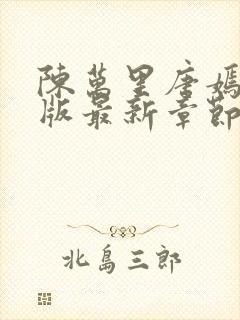 陳萬里唐嫣
版最新章節
北島三郎